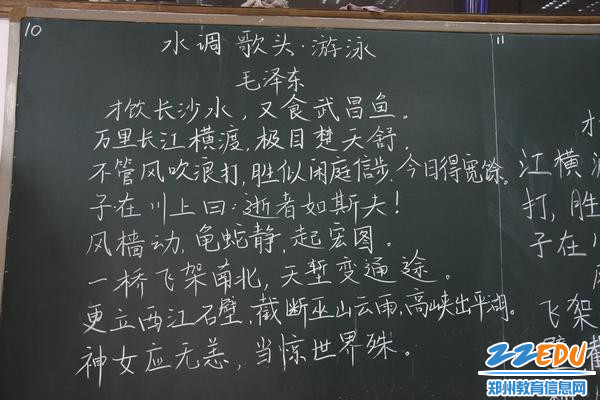 10
水调歌头·游泳
毛泽东
才饮长沙水，又食武昌鱼。
万里长江横渡，极目楚天舒.
不管风吹浪打，胜似闲庭信步，今日得宽馀。
子在川上曰：逝者如斯夫！
风樯动，龟蛇静，起宏图。
一桥飞架南北，天堑变通途。
更立西江石壁，截断巫山云雨，高峡出平湖。
神女应无恙，当惊世界殊。
11
江横渡
打，胜
子在川
飞架
壁，截
ZZEDU
郑州教育信息网